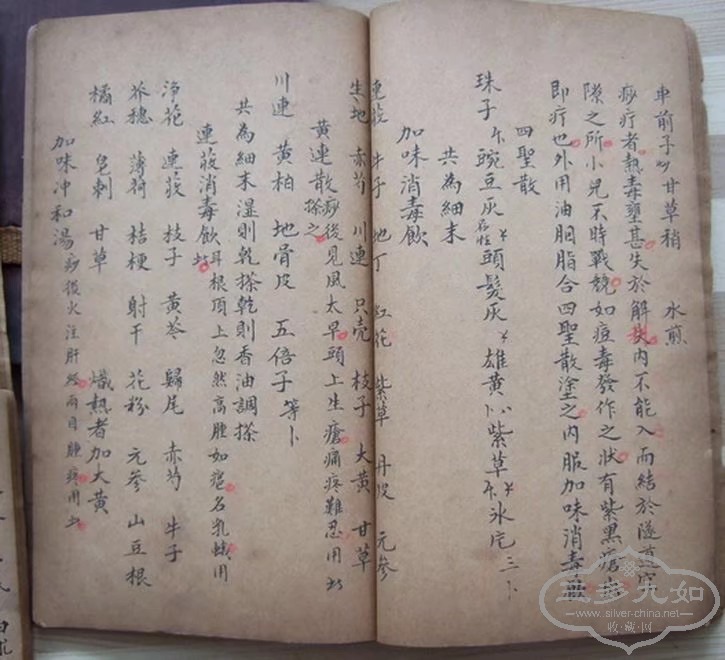 車前子 甘草稍 水煎
痧疔者熱毒壅甚失於解 內不能入而結於隧
隙之所小兒不時戰競如痘毒發作之狀有紫黑瘡
即疔也外用油胭脂合四聖散塗之內服加味消毒
四聖散
珠子 豌豆灰存性 頭髮灰 雄黃 紫草 冰片三卜
共為細末
加味消毒飲
連翹 牛子 地丁 紅花 紫草 丹皮 元參
生地 赤芍 川連 只壳 枝子 大黃 甘草
黃連散搽之 痧後見風太早頭上生瘡痛疼難忍用
川連 黃柏 地骨皮 五倍子 等卜
共為細末湿則乾搽乾則香油調搽
連翹消毒飲 耳根頂上忽然高腫如疤名乳 用
淨花 連翹 枝子 黃芩 歸尾 赤芍 牛子
芥穗 薄荷 桔梗 射干 花粉 元參 山豆根
橘紅 皂刺 甘草 熾熱者加大黃
加味冲和湯 痧後火注肝經両目腫疼用
三多九如
www.silver-china.net
收·藏·网